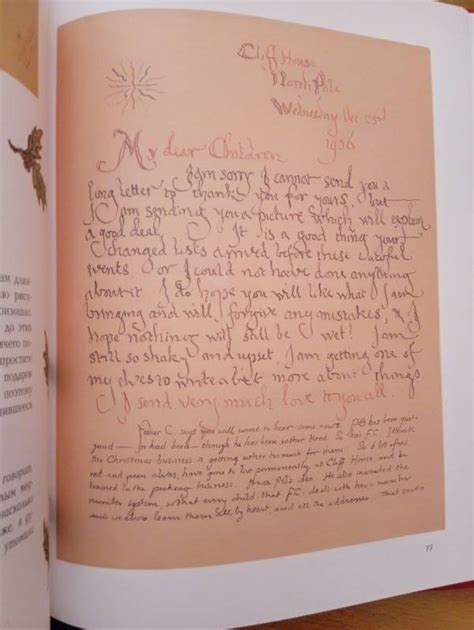 Cliff House
North Pole
Wednesday Dec. 23rd
1936
My dear Children
I am sorry I cannot send you a
long letter to thank you for yours, but
I am sending you a picture which will explain
a good deal. It is a good thing your
changed lists arrived before these awful
events, or I could not have done anything
about it. I do hope you will like what I am
bringing and will forgive any mistakes, & I
hope nothing will still be wet! I am
still so shaky and upset, I am getting one of
my elves to write a bit more about things
I send very much love to you all.
Father C. says you will want to hear some news. PB has been quite
good — or had been — though he has been rather tired. So has F.C.
the Christmas business is getting rather too much for them. So a lot of us
red and green elves, have gone to live permanently at Cliff House, and be
trained in the packing business. It was PB's idea. He also invented the
number system, so that every child that F.C. deals with has a number
and we elves learn them all by heart, and all the addresses. That saves
ам длин
ю рису
оизошл
до эти
чего по
простите
подаров
поэтому
пившиеся
говорит
77